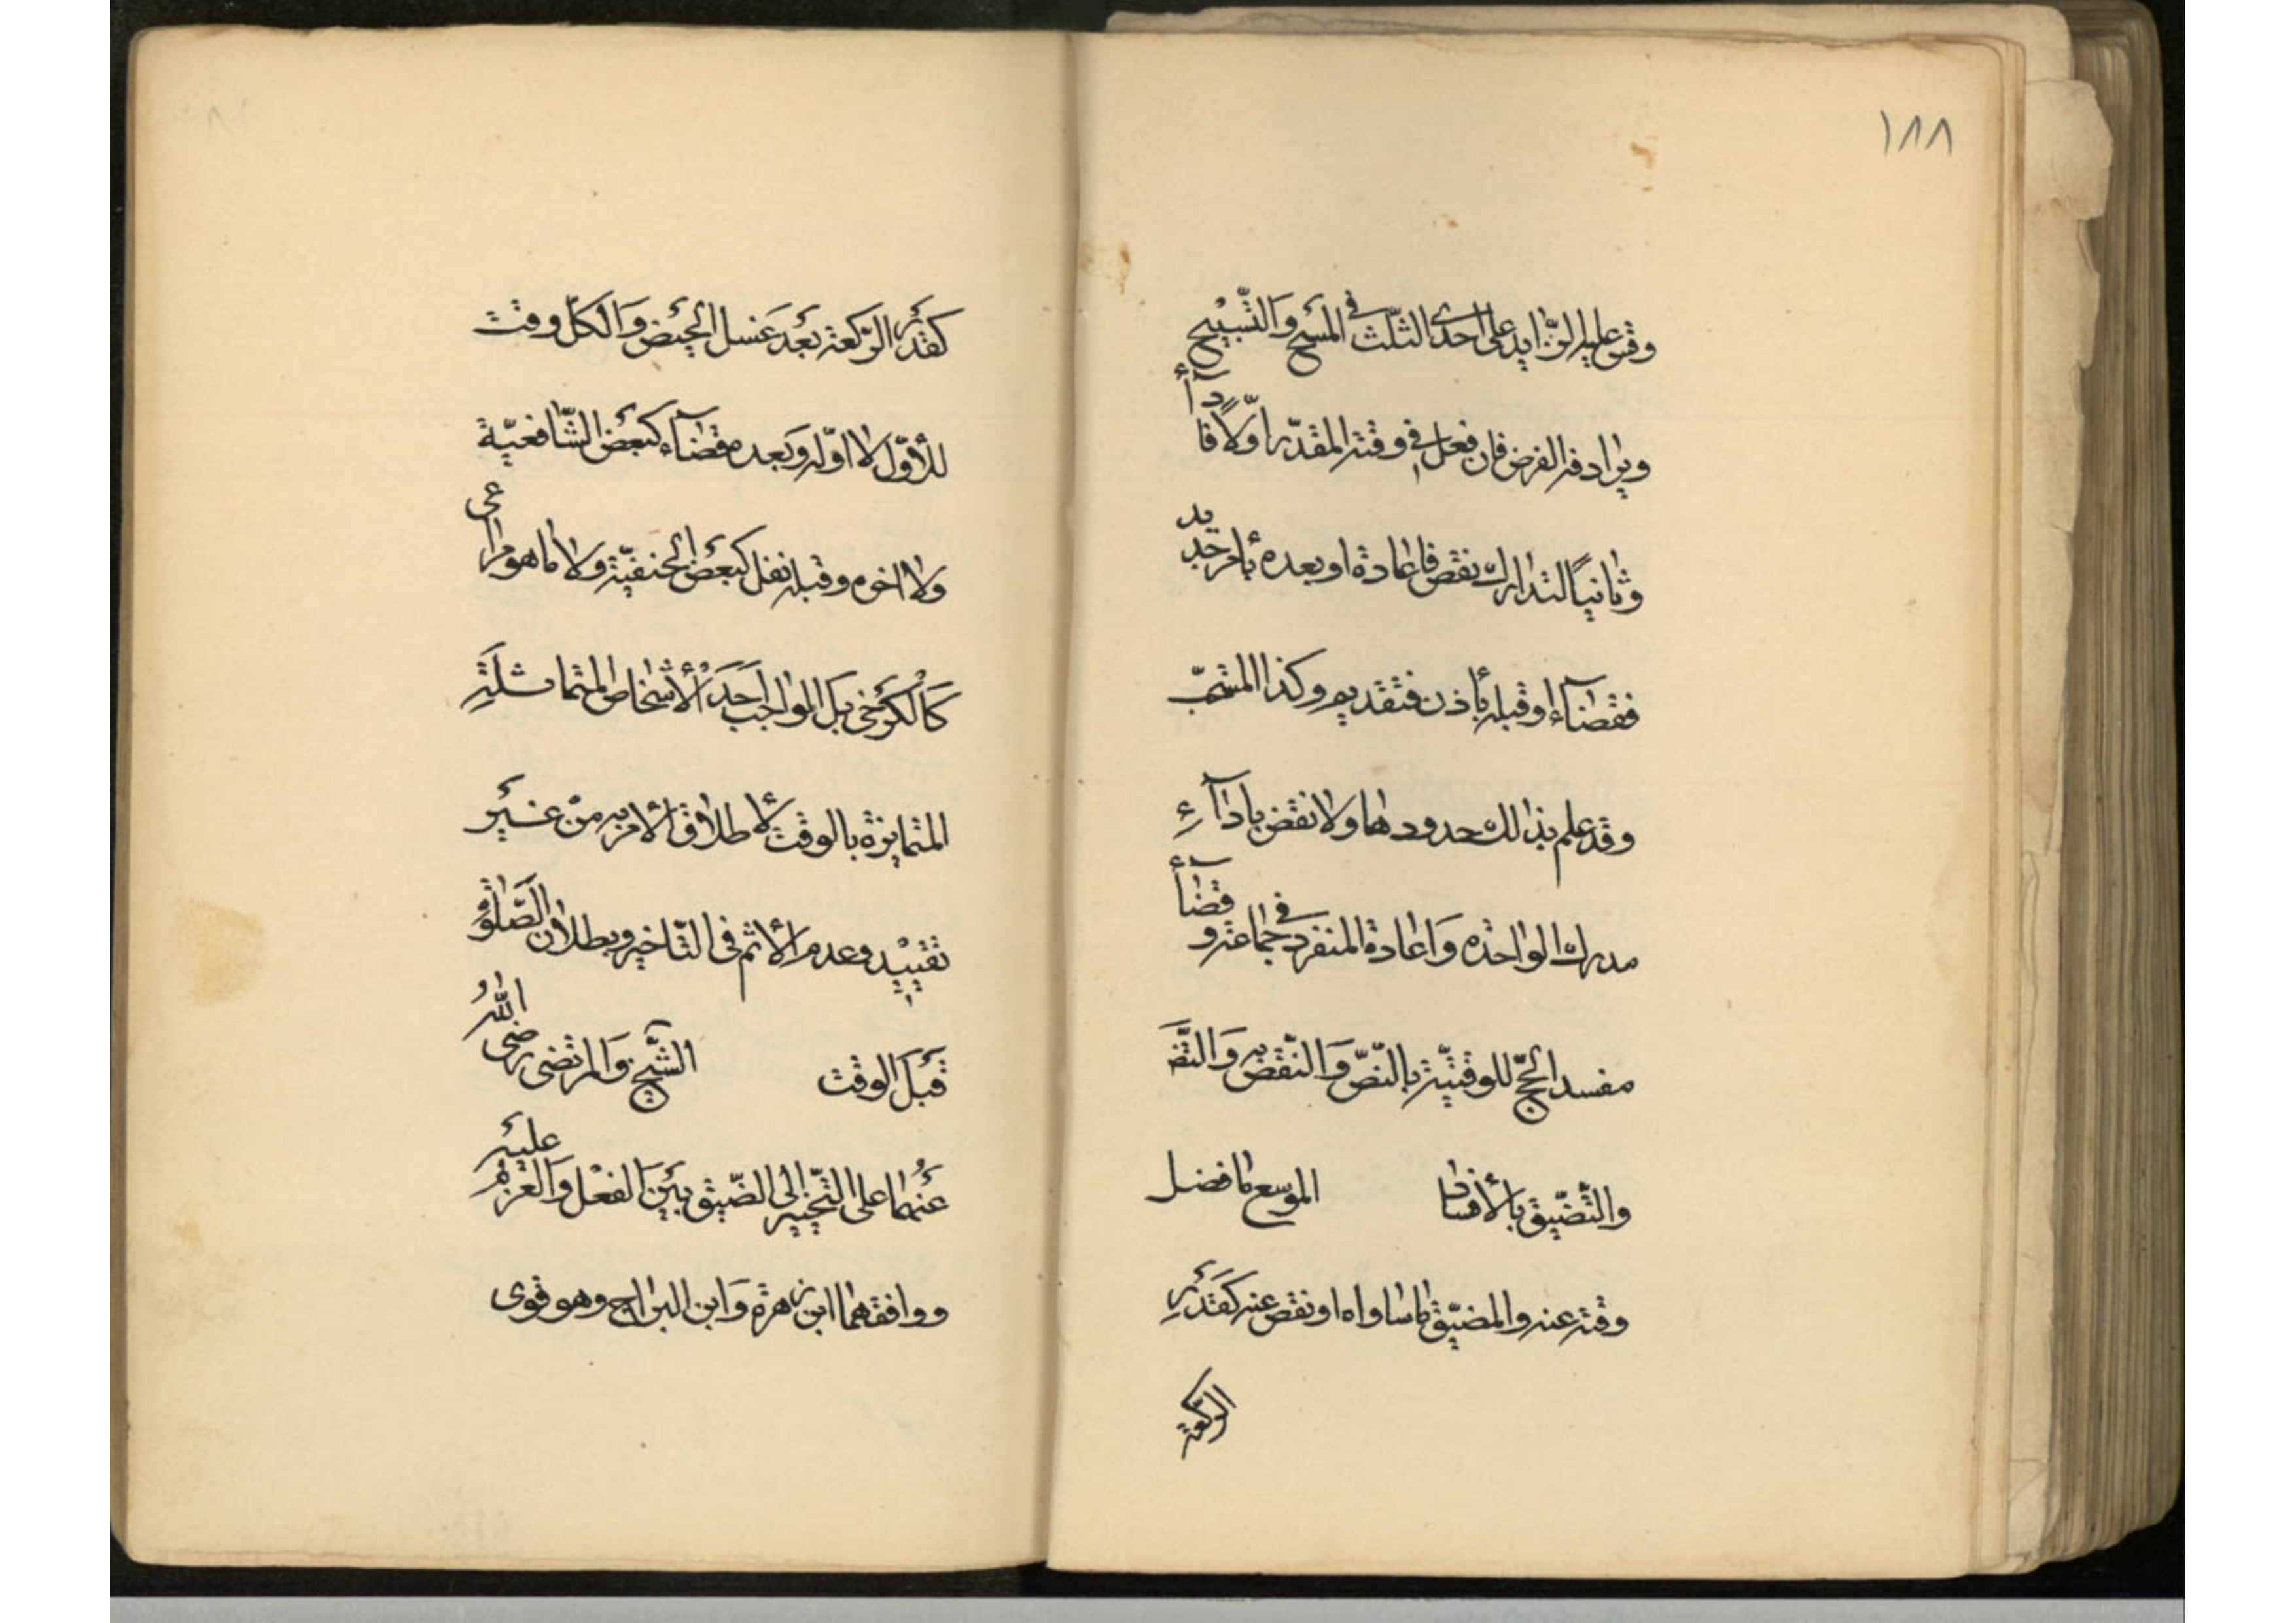 ١٨٨
وقس عليه الزّايد على احدى الثلث في المسح والتّسبيح
ويرادفه الفرض فان فعل في وقته المقدّر اوّلاً فاداءٌ
وثانياً لتدارك نقص فاعادة او بعده بامر جديد
فقضاء او قبله باذن فتقديم وكذا المستحبّ
وقد علم بذالك حدودها ولا نقض باداء
مدرك الواحدة واعادة المنفرد في جماعة وقضاء
مفسد الحجّ للوقتيّة بالنّصّ والنّقض به والتّضـ
والتّضيّق بالافساد الموسع ما فضل
وقته عنه والمضيّق ما ساواه او نقص عنه كقدر
الرّكعة
كقدر الرّكعة بعد غسل الحيض والكلّ وقت
للأوّل لا اوّله وبعده قضاء كبعض الشّافعيّة
ولا اخره وقبله نفل كبعض الحنفيّة ولا ما هو مراعى
كالكرخى بل الواجب احد الأشخاص المتماثلة
المتمايزة بالوقت لاطلاق الامر به من غير
تقييد وعدم الاثم فى التّاخير وبطلان الصّلوة
قبل الوقت الشّيخ والمرتضى رضى الله
عنهما على التّخيير الى الضّيق بين الفعل والعزم عليه
ووافقهما ابن زهرة وابن البراج وهو قوى